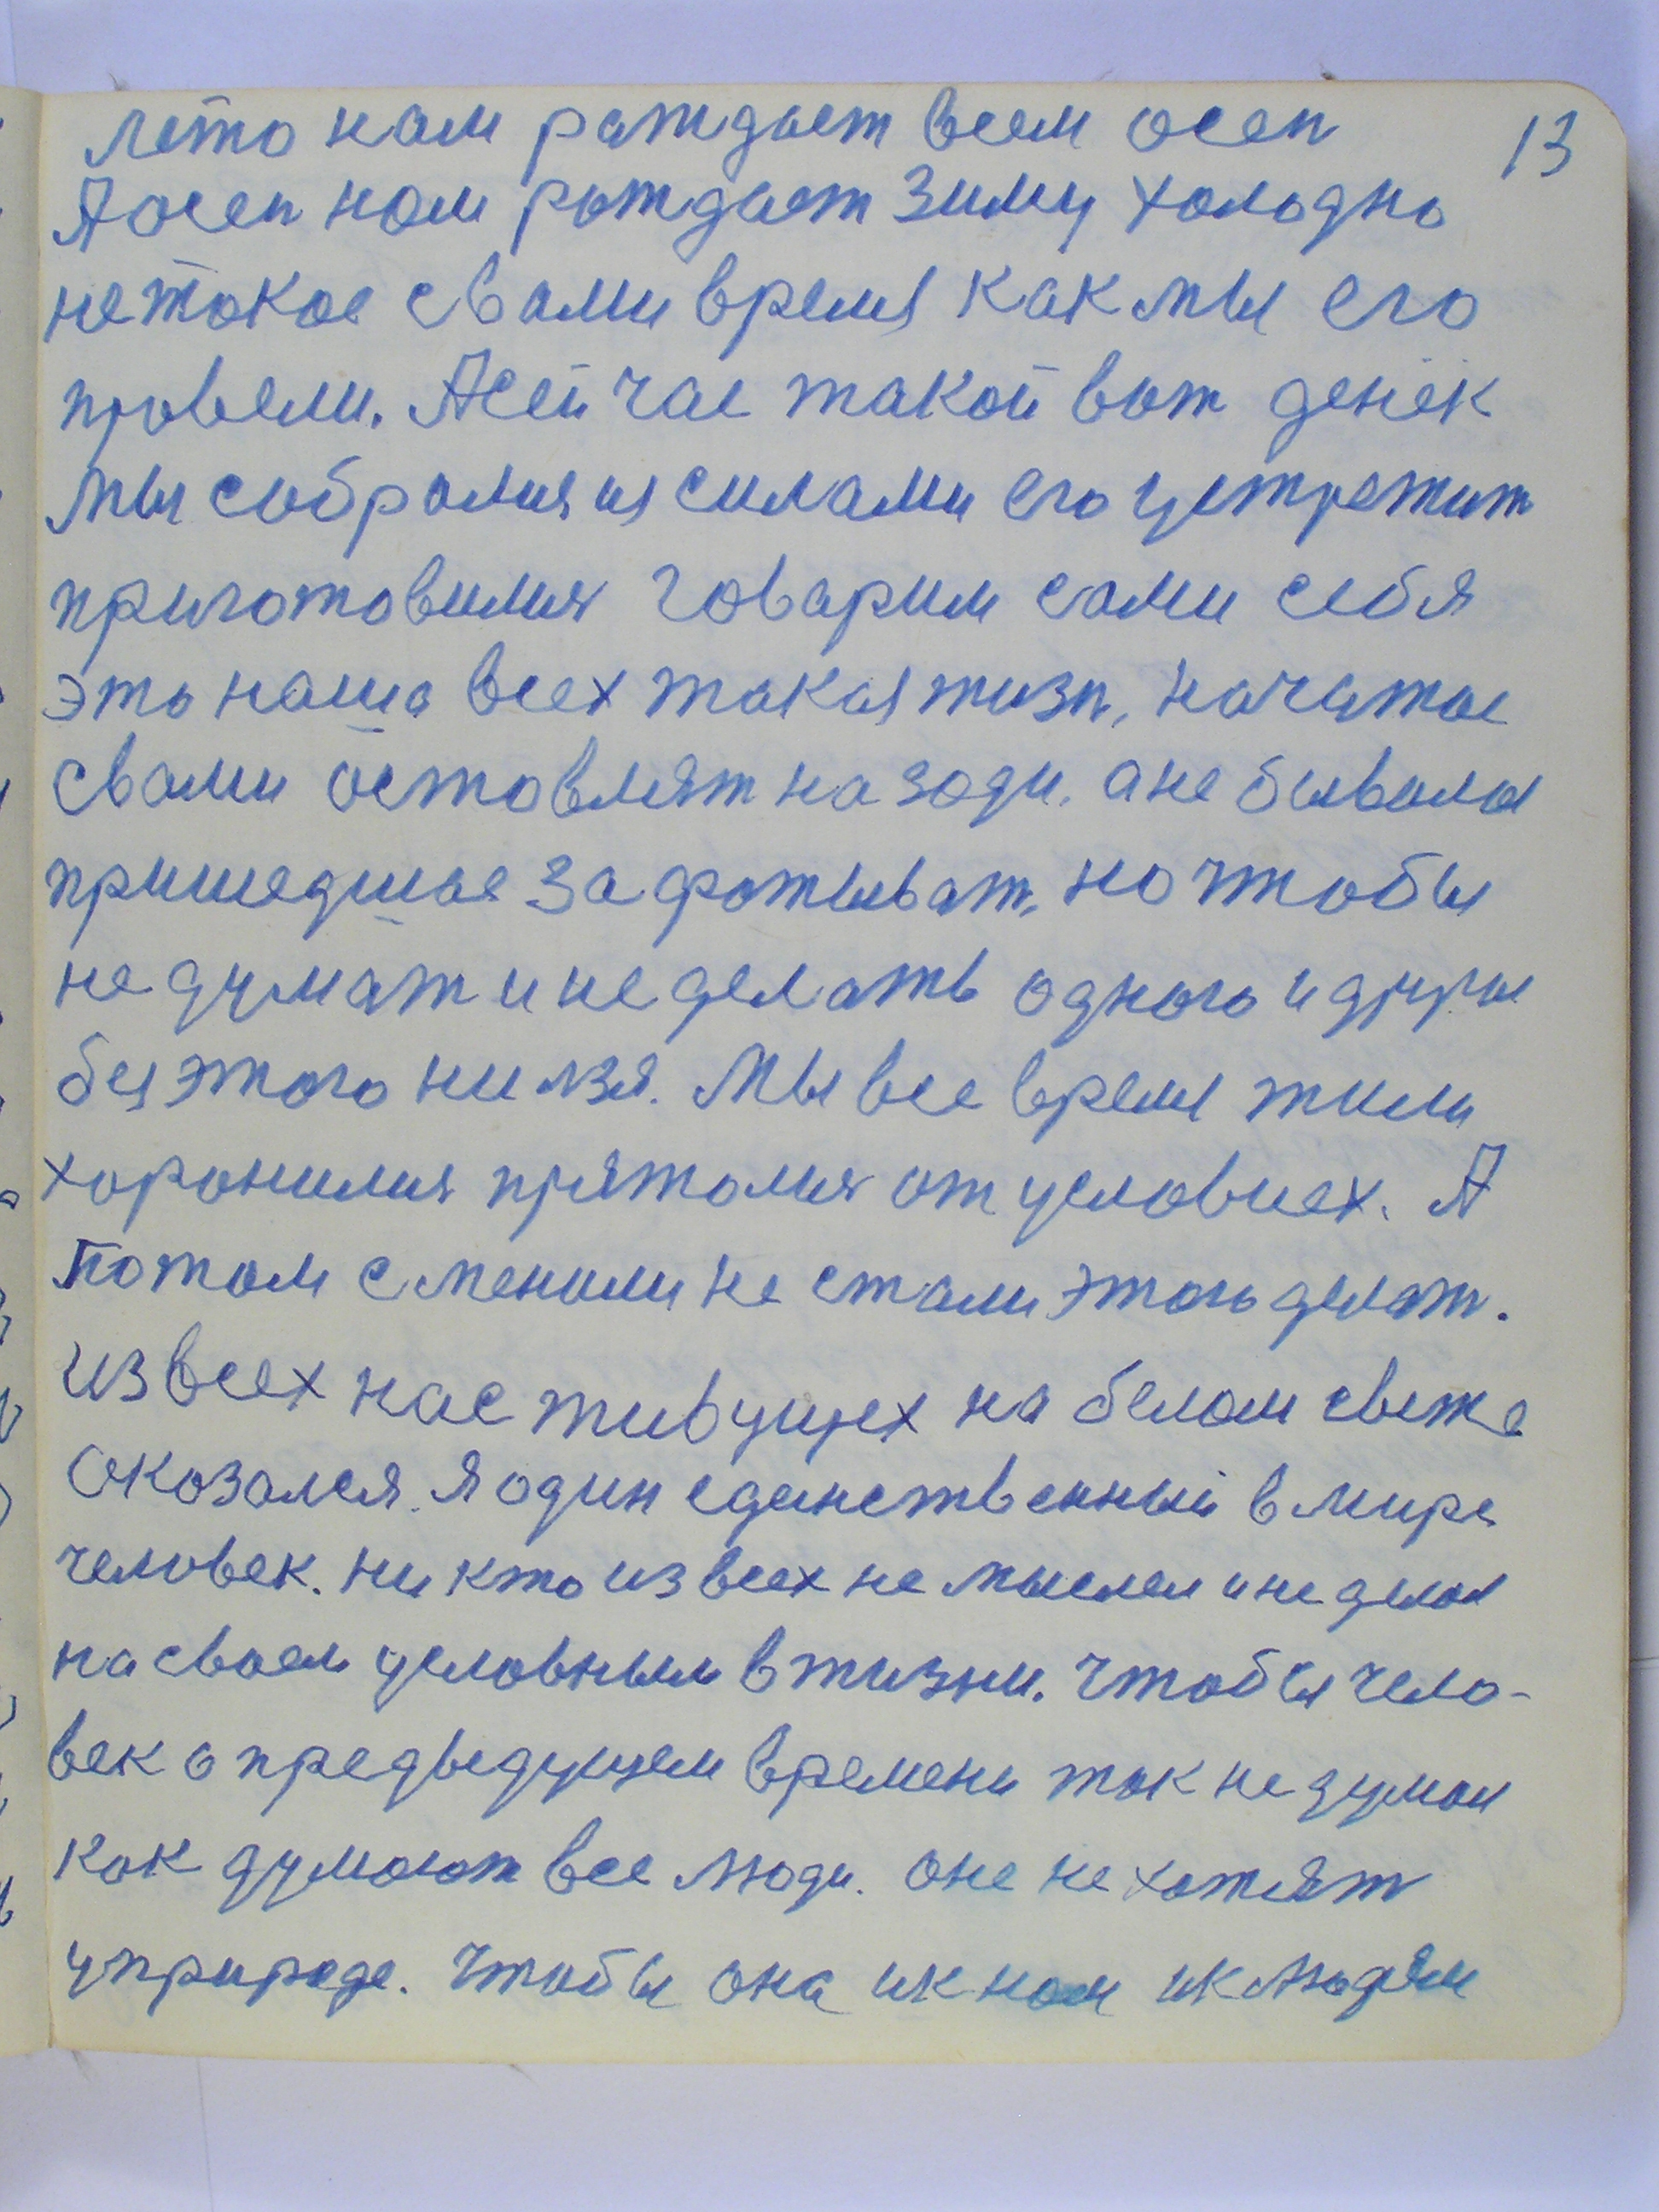 лето нам раждает всем осен 13
А осен нам рождает зиму холодно
не такое с вами время как мы его
провели. А сейчас такой вот денёк
мы собралися и силами его устретит
приготовилися говарим сами себя
это наша всех такая жизн, начатое
с вами оставлят назади. а не бывалое
пришедшее зафатыват, но чтобы
не думат и не делать одного и другое
без этого нилзя. Мы все время жили
хоронилися прятолися от условиех. А
потом сменили не стали этого делат.
из всех нас живущех на белом свете
оказался. я один единственный в мире
человек. ни кто из всех не мыслел и не делал
на своем условным в жизни. чтобы чело-
век о предыдущем времени так не думал
как думают все люди. оне не хотят
у природе. чтобы она ик нам ик людям